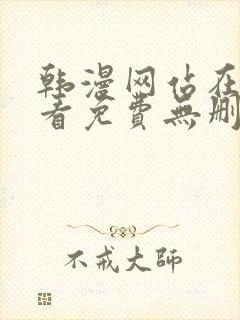 韩漫网站在
看免費無刪
不戒大師